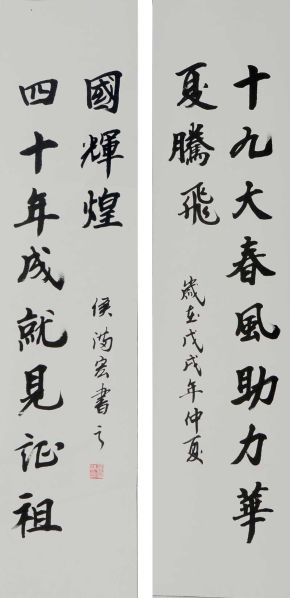 十九大春風助力華
夏騰飛
歲在戊戌年仲夏
四十年成就見证祖
國輝煌
侯满宏書